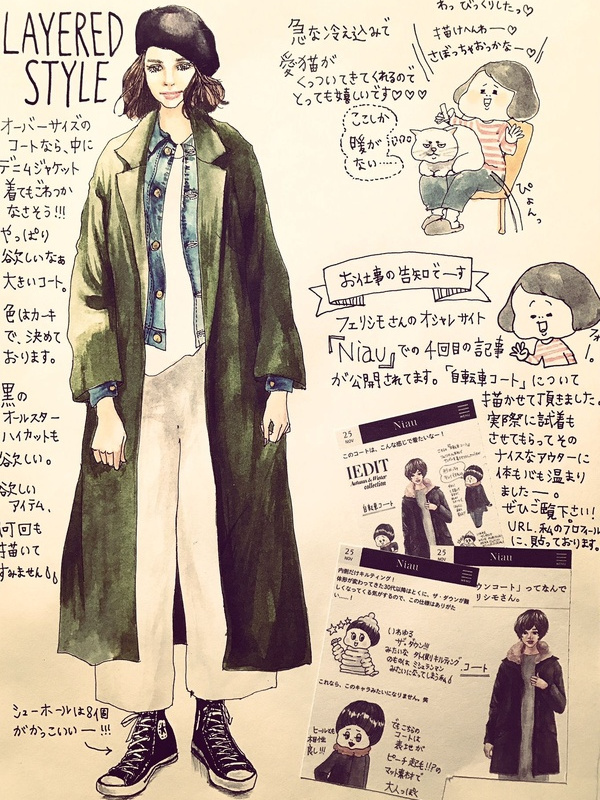 LAYERED
STYLE
オーバーサイズの
コートなら、中に
デニムジャケット
着てもごわつか
なさそう!!!
やっぱり
欲しいなぁ
大きいコート。
色はカーキ
で、決めて
おります。
黒の
オールスター
ハイカットも
欲しい。
欲しい
アイテム、
何回も
描いて
すみません
シューホールは8個
がかっこいいー!!!
急な冷え込みで
愛猫が
くっついてきてくれるので
とっても嬉しいです♡♡♡
わっ びっくりしたっ♡
描けへんわー♡
さぼっちゃおっかなー♡
ここしか
暖が
ない…
ぴょんっ
お仕事の告知でーす
フェリシモさんのオシャレサイト
『Niau』での4回目の記事
が公開されてます。「自転車コート」について
描かせて頂きました。
実際に試着も
させてもらってその
ナイスなアウターに
体も心も温まり
ましたー。
ぜひご覧下さい!
URL、私のプロフィール
に、貼っております。
25
NOV
Niau
このコートは、こんな感じで着たいなー!
IEDIT
Autumn & Winter
collection
自転車コート
25
NOV
Niau
25
NOV
Niau
内側だけキルティング!
体形が変わってきた30代以降はとくに、ザ・ダウンが難
しくなってくる気がするので、この仕様はありがた
い……!
いわゆる
ザ・ダウン!!!
みたいな タイ(則キルティング
のものは ミシュランマン
みたいになってしまう私
これなら、このキャラみたいになりません。笑
ヒールも
相性
良し!!!
ですこちらの
コートは
表地が
ピーチ起毛!!
マット素材で
大人っぽく
ウンコート」ってなんで
リシモさん。
コート